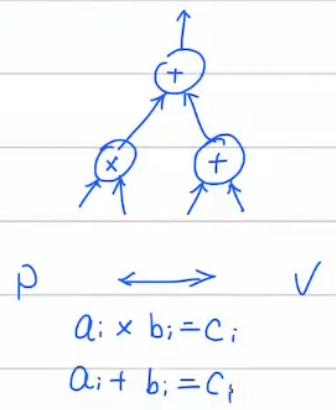 +
× +
P ⟷ V
aᵢ × bᵢ = cᵢ
aᵢ + bᵢ = cᵢ